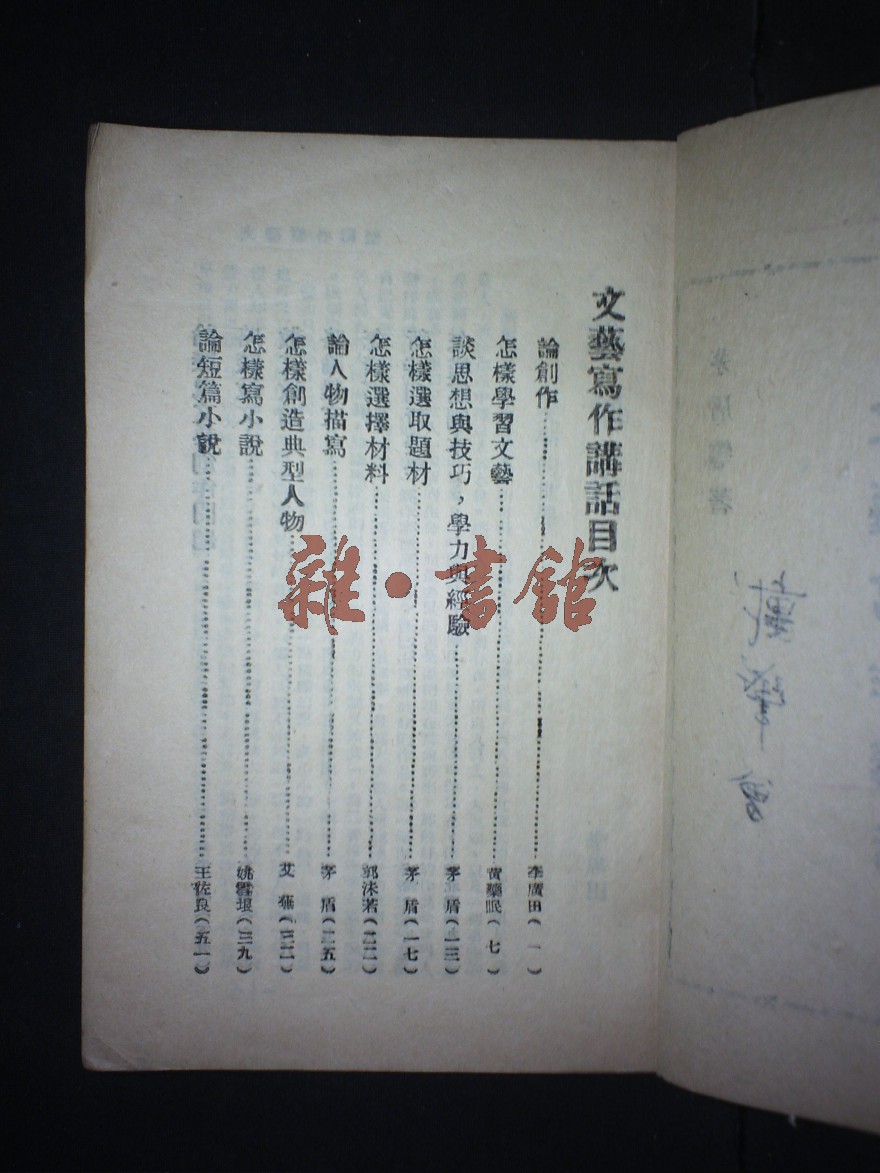 文藝寫作講話目次
論創作……李廣田(一)
怎樣學習文藝……黃藥眠(七)
談思想與技巧，學力與經驗……茅盾(一三)
怎樣選取題材……茅盾(一七)
怎樣選擇材料……郭沫若(二二)
論人物描寫……茅盾(二五)
怎樣創造典型人物……艾蕪(三二)
怎樣寫小說……姚雪垠(三九)
論短篇小說……王佐良(五一)
雜·書館